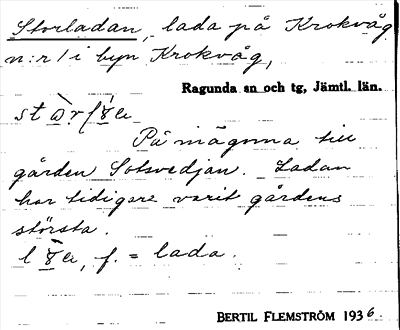 Storladan, lada på Krokvåg
n:r 1 i byn Krokvåg,
Ragunda sn och tg, Jämtl. län.
På mägorna till
gården Sotsvedjan. Ladan
har tidigare varit gårdens
största.
f. = lada.
BERTIL FLEMSTRÖM 1936.